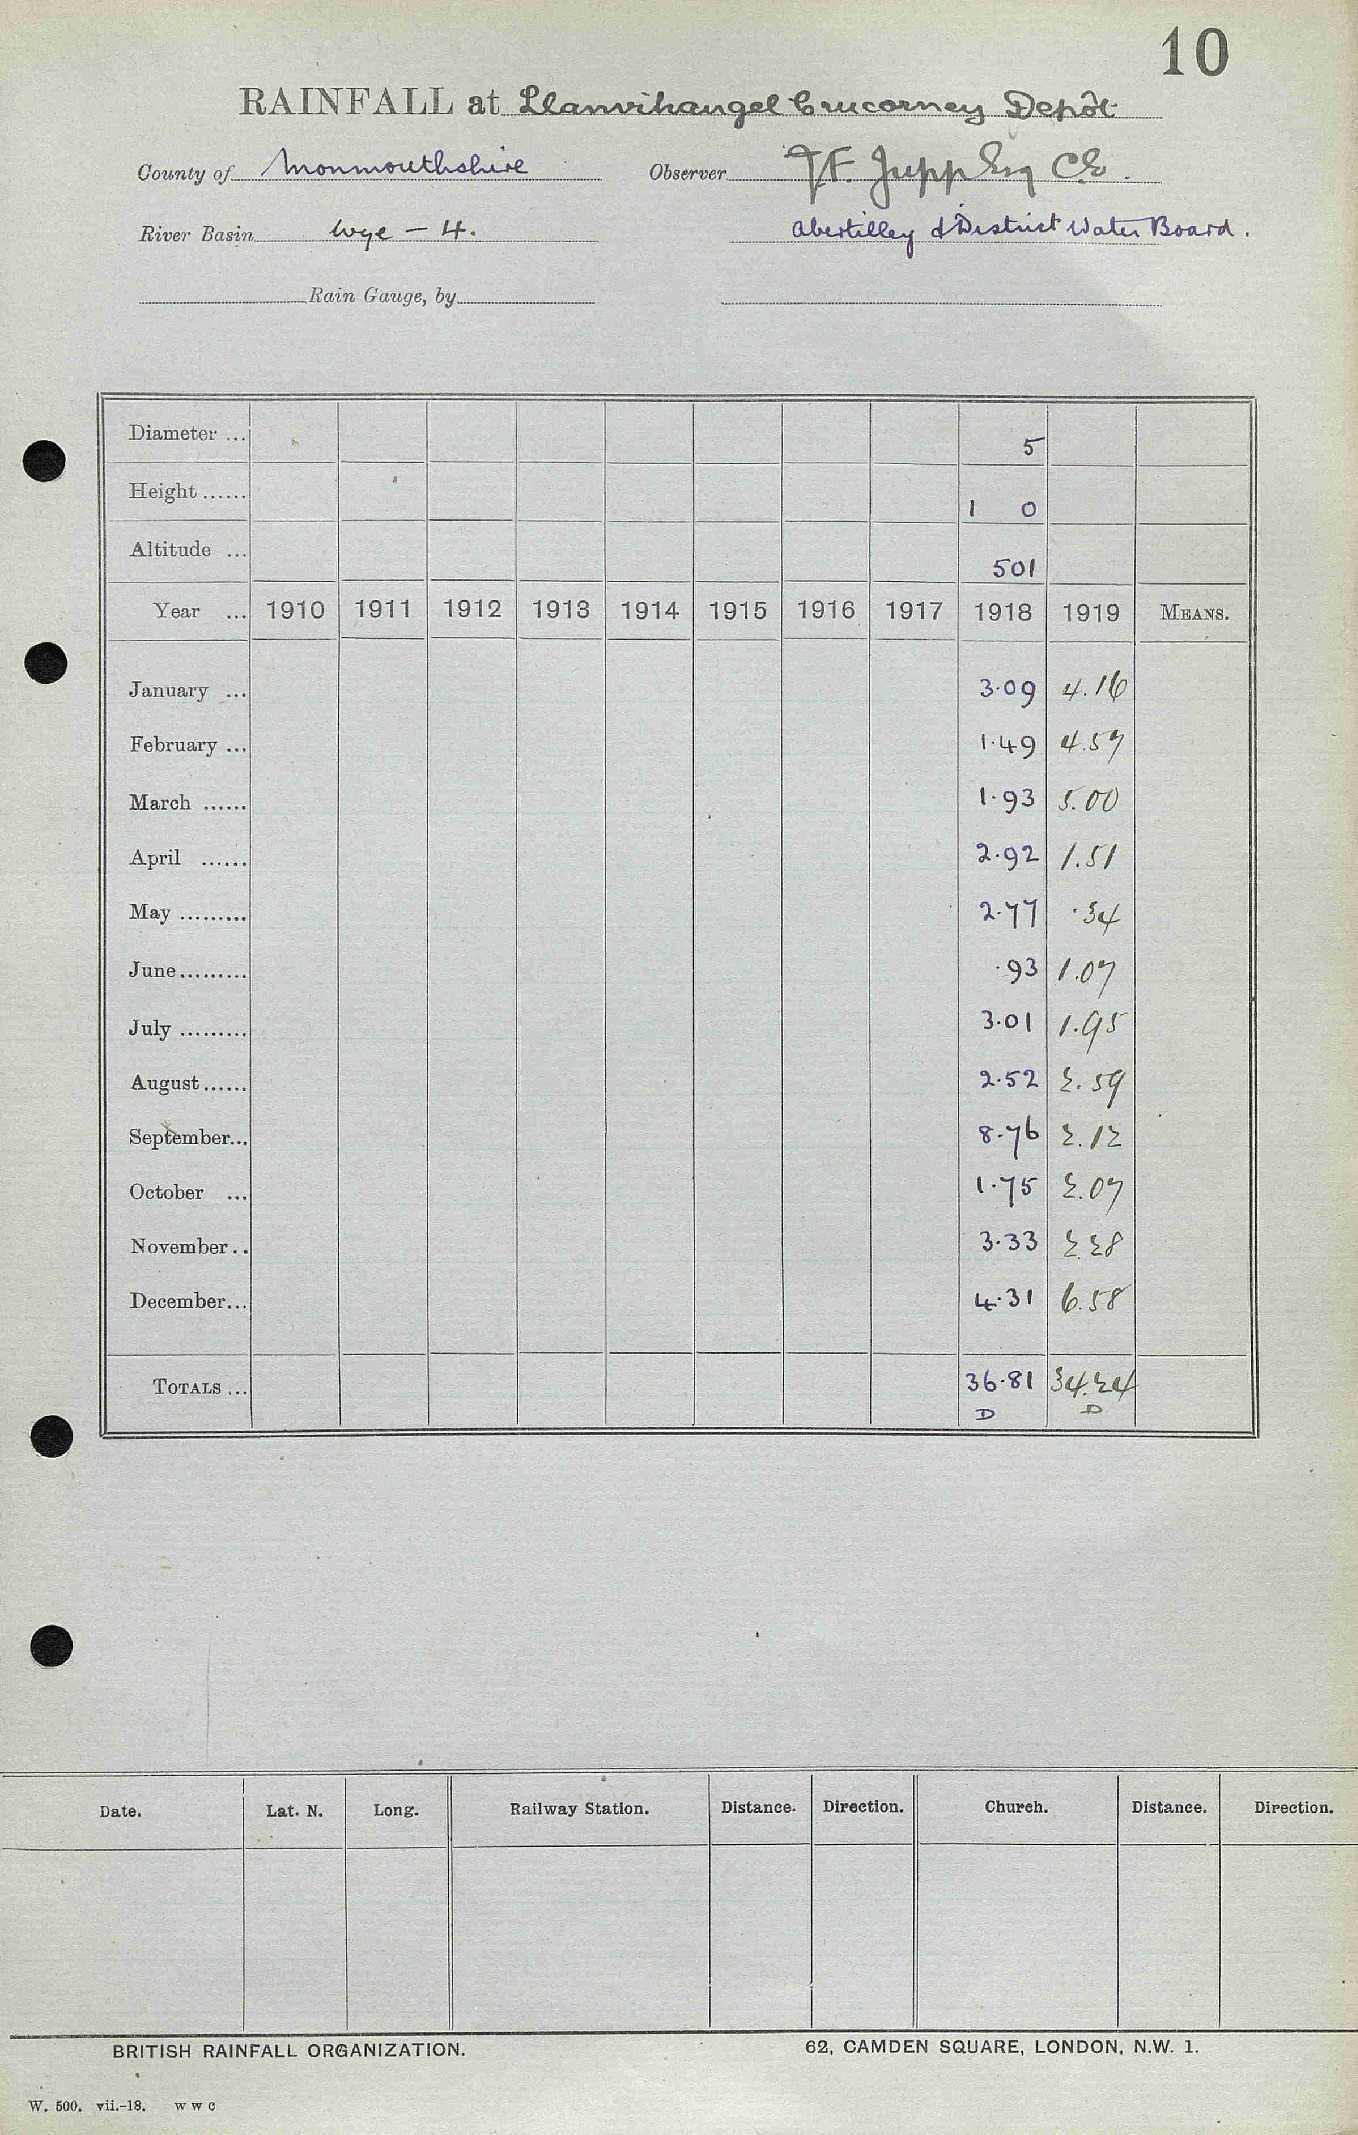 10
RAINFALL at Llanvihangel Crucorney Depôt
County of Monmouthshire Observer J F. Jupp Esq CE.
River Basin Wye - 4. Abertilley & District Water Board.
Rain Gauge, by
Diameter ... 5
Height ...... 1 0
Altitude ... 501
Year ... 1910 1911 1912 1913 1914 1915 1916 1917 1918 1919 MEANS.
January ... 3.09 4.16
February ... 1.49 4.57
March ...... 1.93 5.00
April ...... 2.92 1.51
May ......... 2.77 .34
June......... .93 1.07
July ......... 3.01 1.95
August...... 2.52 2.59
September... 8.76 2.12
October ... 1.75 2.07
November.. 3.33 2.28
December... 4.31 6.58
TOTALS ... 36.81 34.24
D D
Date. Lat. N. Long. Railway Station. Distance. Direction. Church. Distance. Direction.
BRITISH RAINFALL ORGANIZATION. 62, CAMDEN SQUARE, LONDON, N.W. 1.
W. 500. vii.-18. W W C